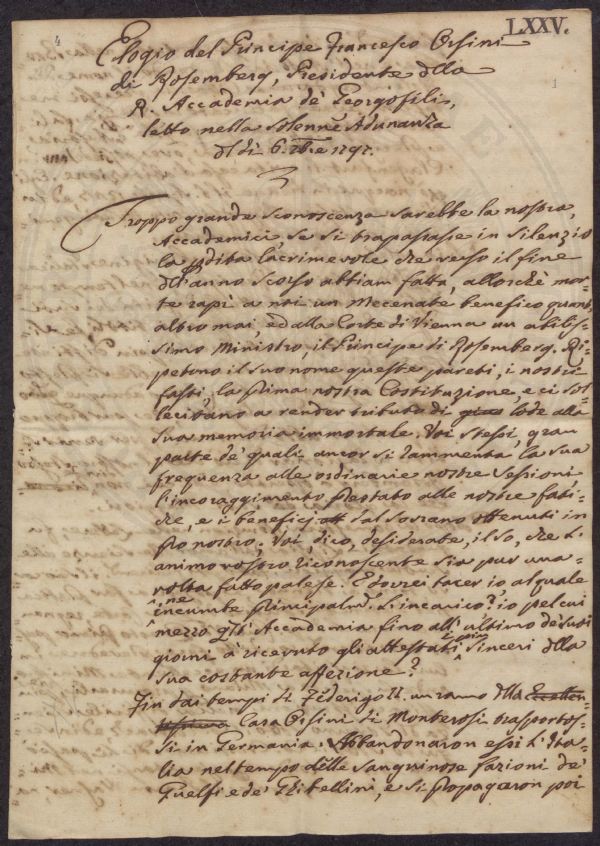 LXXV.
4
Elogio del Principe Francesco Orsini
di Rosemberg, Presidente dlla
R. Accademia de' Georgofili,
letto nella solenne Adunanza
dl dì 6. 1797.
Troppo grande sconoscenza sarebbe la nostra,
Accademici, se si trapassasse in silenzio
la pdita lacrimevole che verso il fine
dll'anno scorso abbiam fatta, allorchè mor-
te rapì a noi un Mecenate benefico quant'
altro mai, ed alla Corte di Vienna un abilis-
simo Ministro, il Principe di Rosemberg. Ri-
petono il suo nome queste pareti, i nostri
fasti, la prima nostra Costituzione, e ci sol-
lecitano a render tributo di lode alla
sua memoria immortale. Voi stessi, gran
parte de' quali ancor si rammenta la sua
frequenza alle ordinarie nostre Sessioni
l'incoraggimento prestato alle nostre fati-
che, e i beneficj dal Sovrano ottenuti in
pro nostro; Voi, dico, desiderate, il so, che l'
animo vostro riconoscente sia pur una
volta fatto palese. E dovrei tacer io al quale
ne incumbe principalmte. l'incarico? io pel cui
mezzo qta Accademia fino all'ultimo de' suoi
giorni à ricevuto gli attestati sinceri dlla
sua costante affezione?
Fin dai tempi di Federigo II. un ramo dlla
Casa Orsini di Monterosi trasportos-
si in Germania. Abbandonaron essi l'Ita-
lia nel tempo delle sanguinose fazioni de'
Guelfi e de' Ghibellini, e si propagaron poi